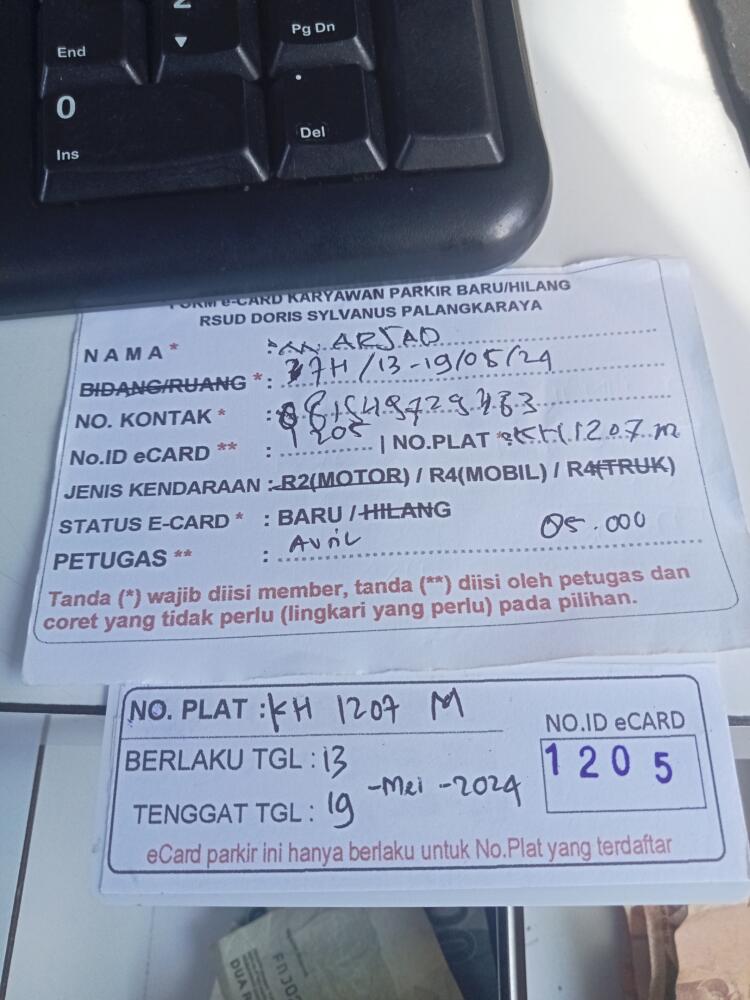 End
2
Pg Dn
0
Ins
Del
FORM e-CARD KARYAWAN PARKIR BARU/HILANG
RSUD DORIS SYLVANUS PALANGKARAYA
NAMA* : ARSAD
BIDANG/RUANG *: 7H/13-19/05/24
NO. KONTAK * :
No.ID eCARD ** : 1205 | NO.PLAT *: KH 1207 M
JENIS KENDARAAN : R2(MOTOR) / R4(MOBIL) / R4(TRUK)
STATUS E-CARD * : BARU / HILANG
PETUGAS ** : Avril 05.000
Tanda (*) wajib diisi member, tanda (**) diisi oleh petugas dan
coret yang tidak perlu (lingkari yang perlu) pada pilihan.
NO. PLAT : KH 1207 M
NO.ID eCARD
1205
BERLAKU TGL : 13
-Mei -2024
TENGGAT TGL : 19
eCard parkir ini hanya berlaku untuk No.Plat yang terdaftar
DUA